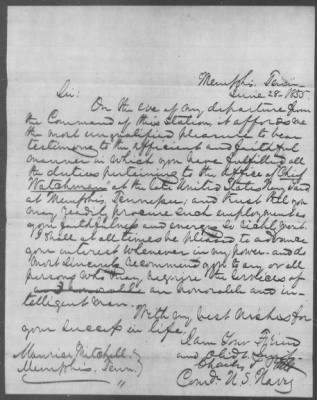 Memphis Tenn
June 28- 1855
Sir:
On the eve of my departure from
the Command of this station it affords me
the most unqualified pleasure to bear
testimony to the efficient and faithful
manner in which you have fulfilled all
the duties pertaining to the office of Chief
Watchman at the late United States Navy Yard
at Memphis, Tennessee; and trust that you
may readily procure such employment as
your faithfulness and energies so richly merit.
I shall at all times be pleased to advance
your interest whenever in my power- and do
most sincerely recommend you to any or all
persons who may require the services of
an honorable and in-
telligent man.
With my best wishes for
your success in life,
I am Your Friend
and Obdt
Charles
Comdr U.S. Navy
Maurice Mitchell
Memphis, Tenn.
"